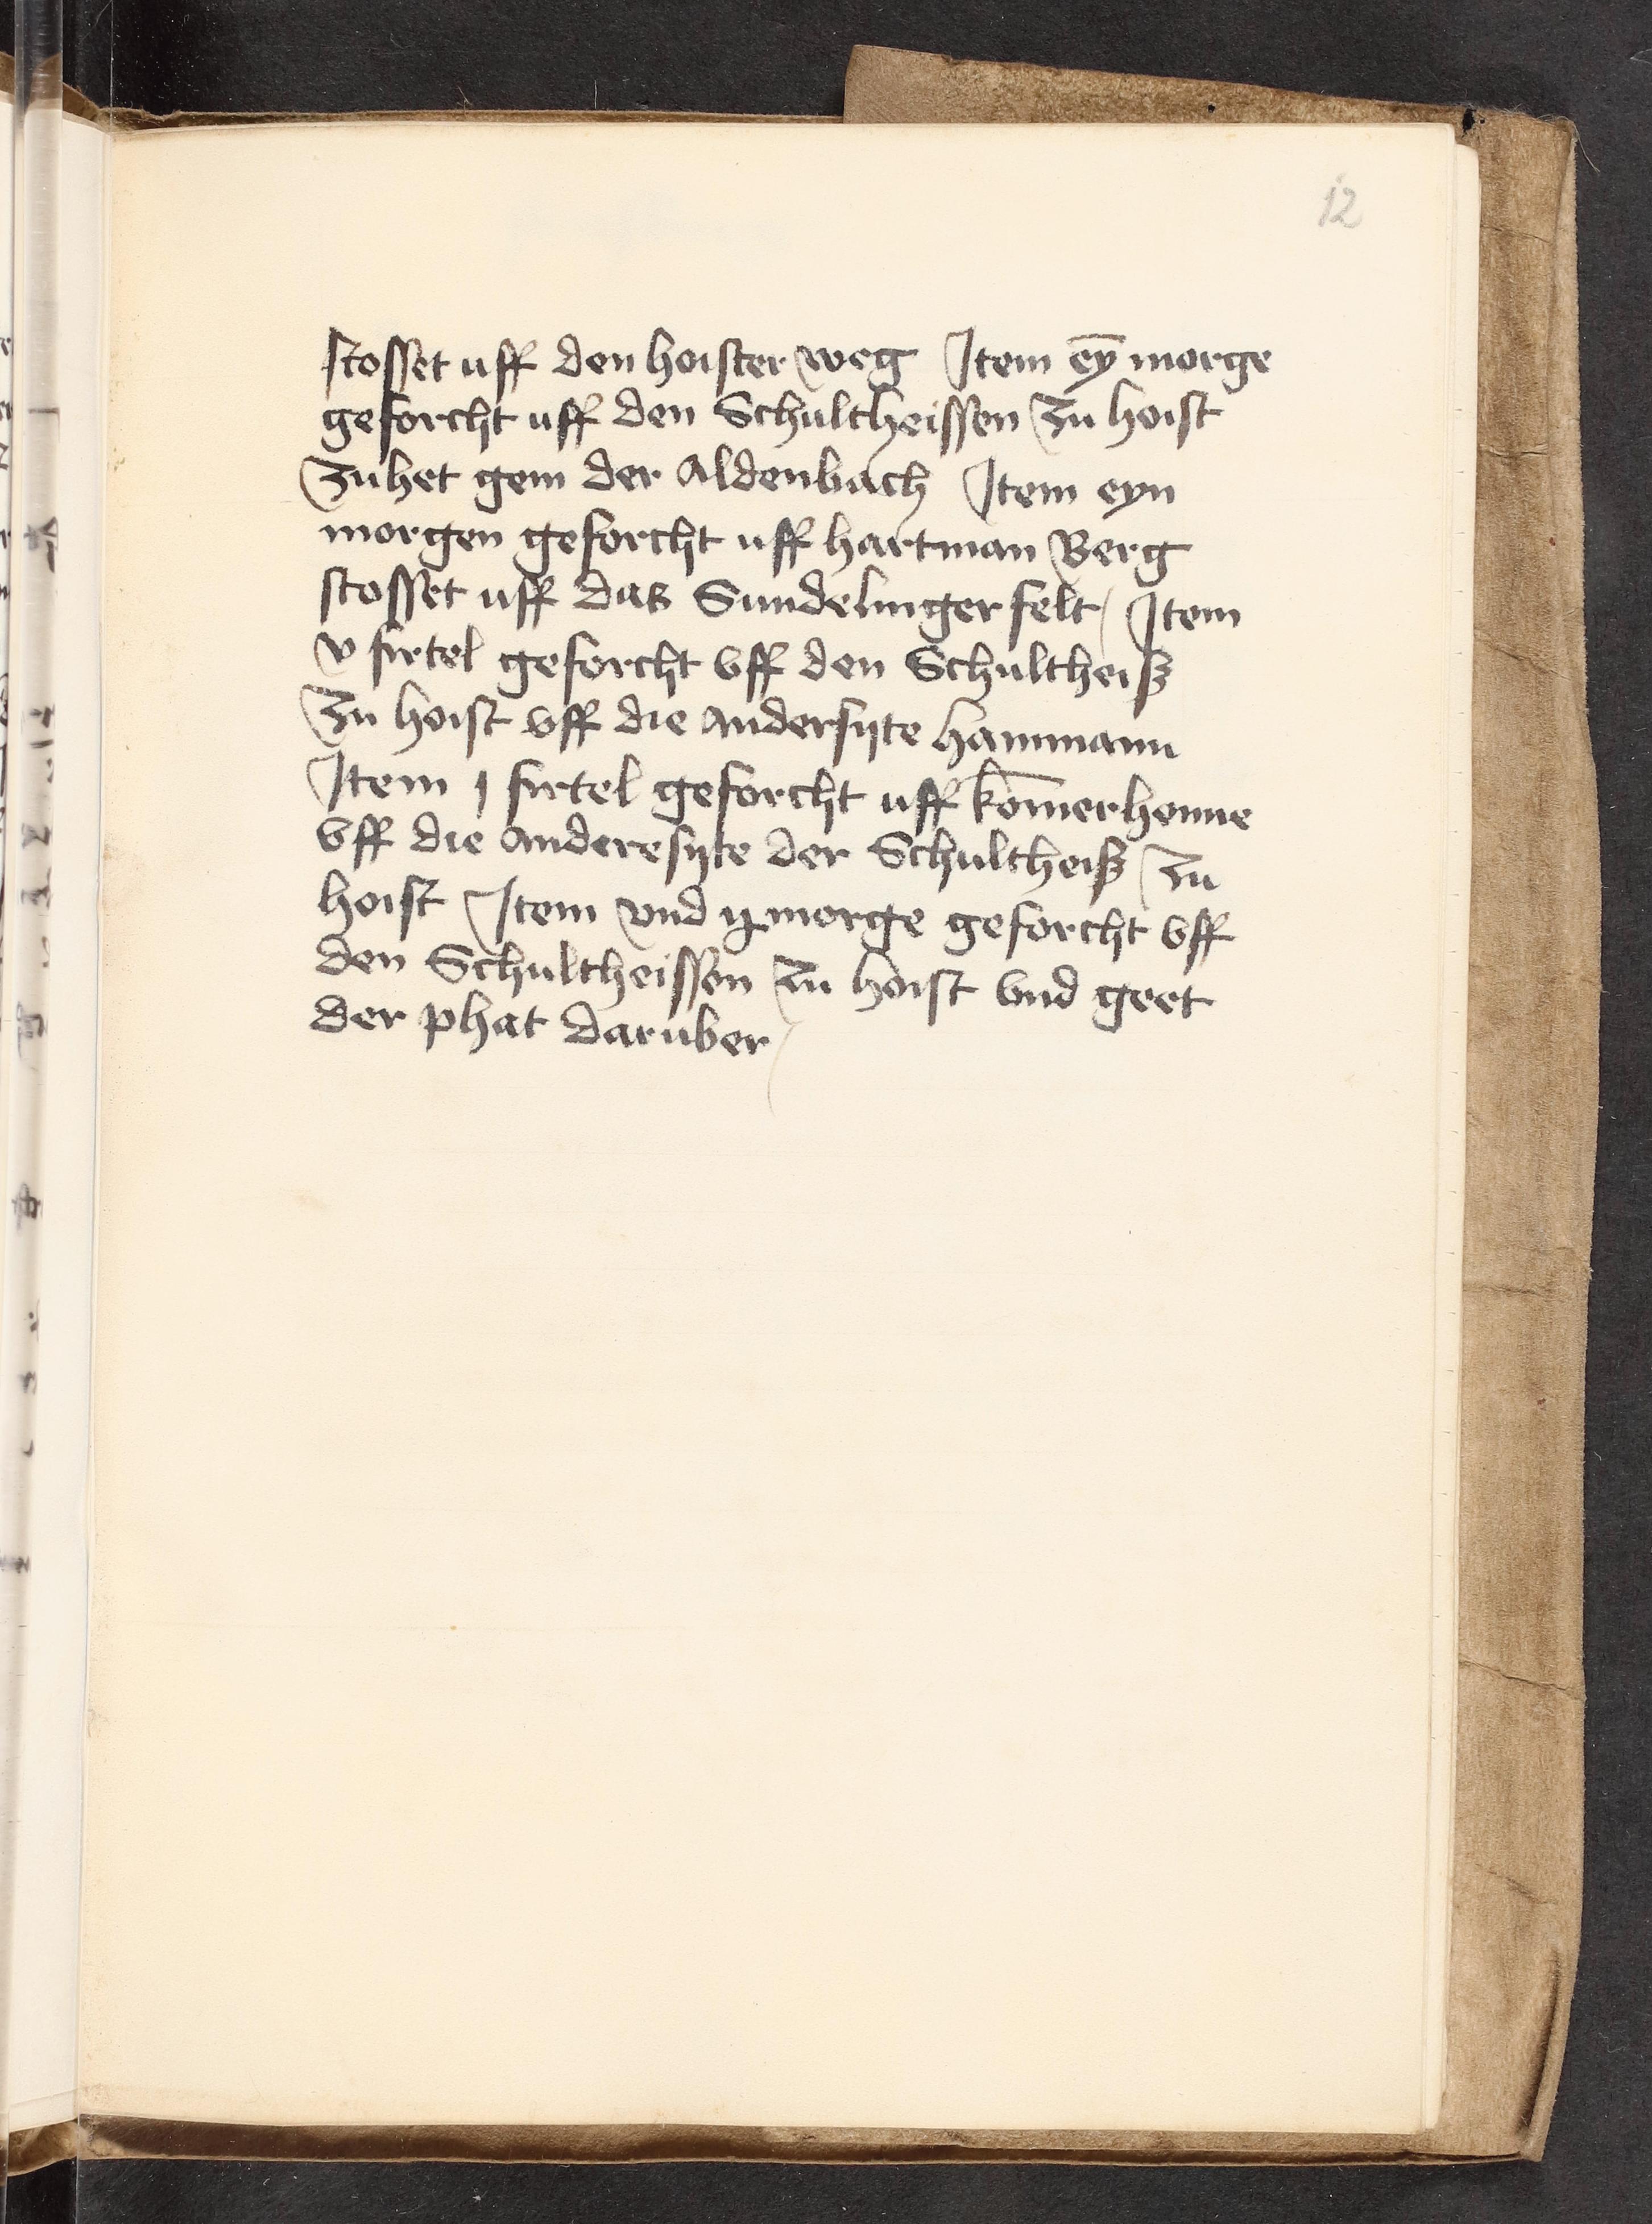 12
stosset uff den hoister weg Item eȳ morge
geforcht uff den Schultheissen zu hoist
zuhet gem der Aldenbach Item eyn
morgen geforcht uff hartman Berg
stosset uff das Sundelinger felt / Item
v firtel geforcht vff den Schultheiß
zu hoist vff die andersijte hammann
Item j firtel geforcht uff kom̄erhenne
vff die anderesijte der Schultheiß zu
hoist Item vnd morge geforcht vff
den Schultheissen zu hoist vnd geet
der phat daruber /